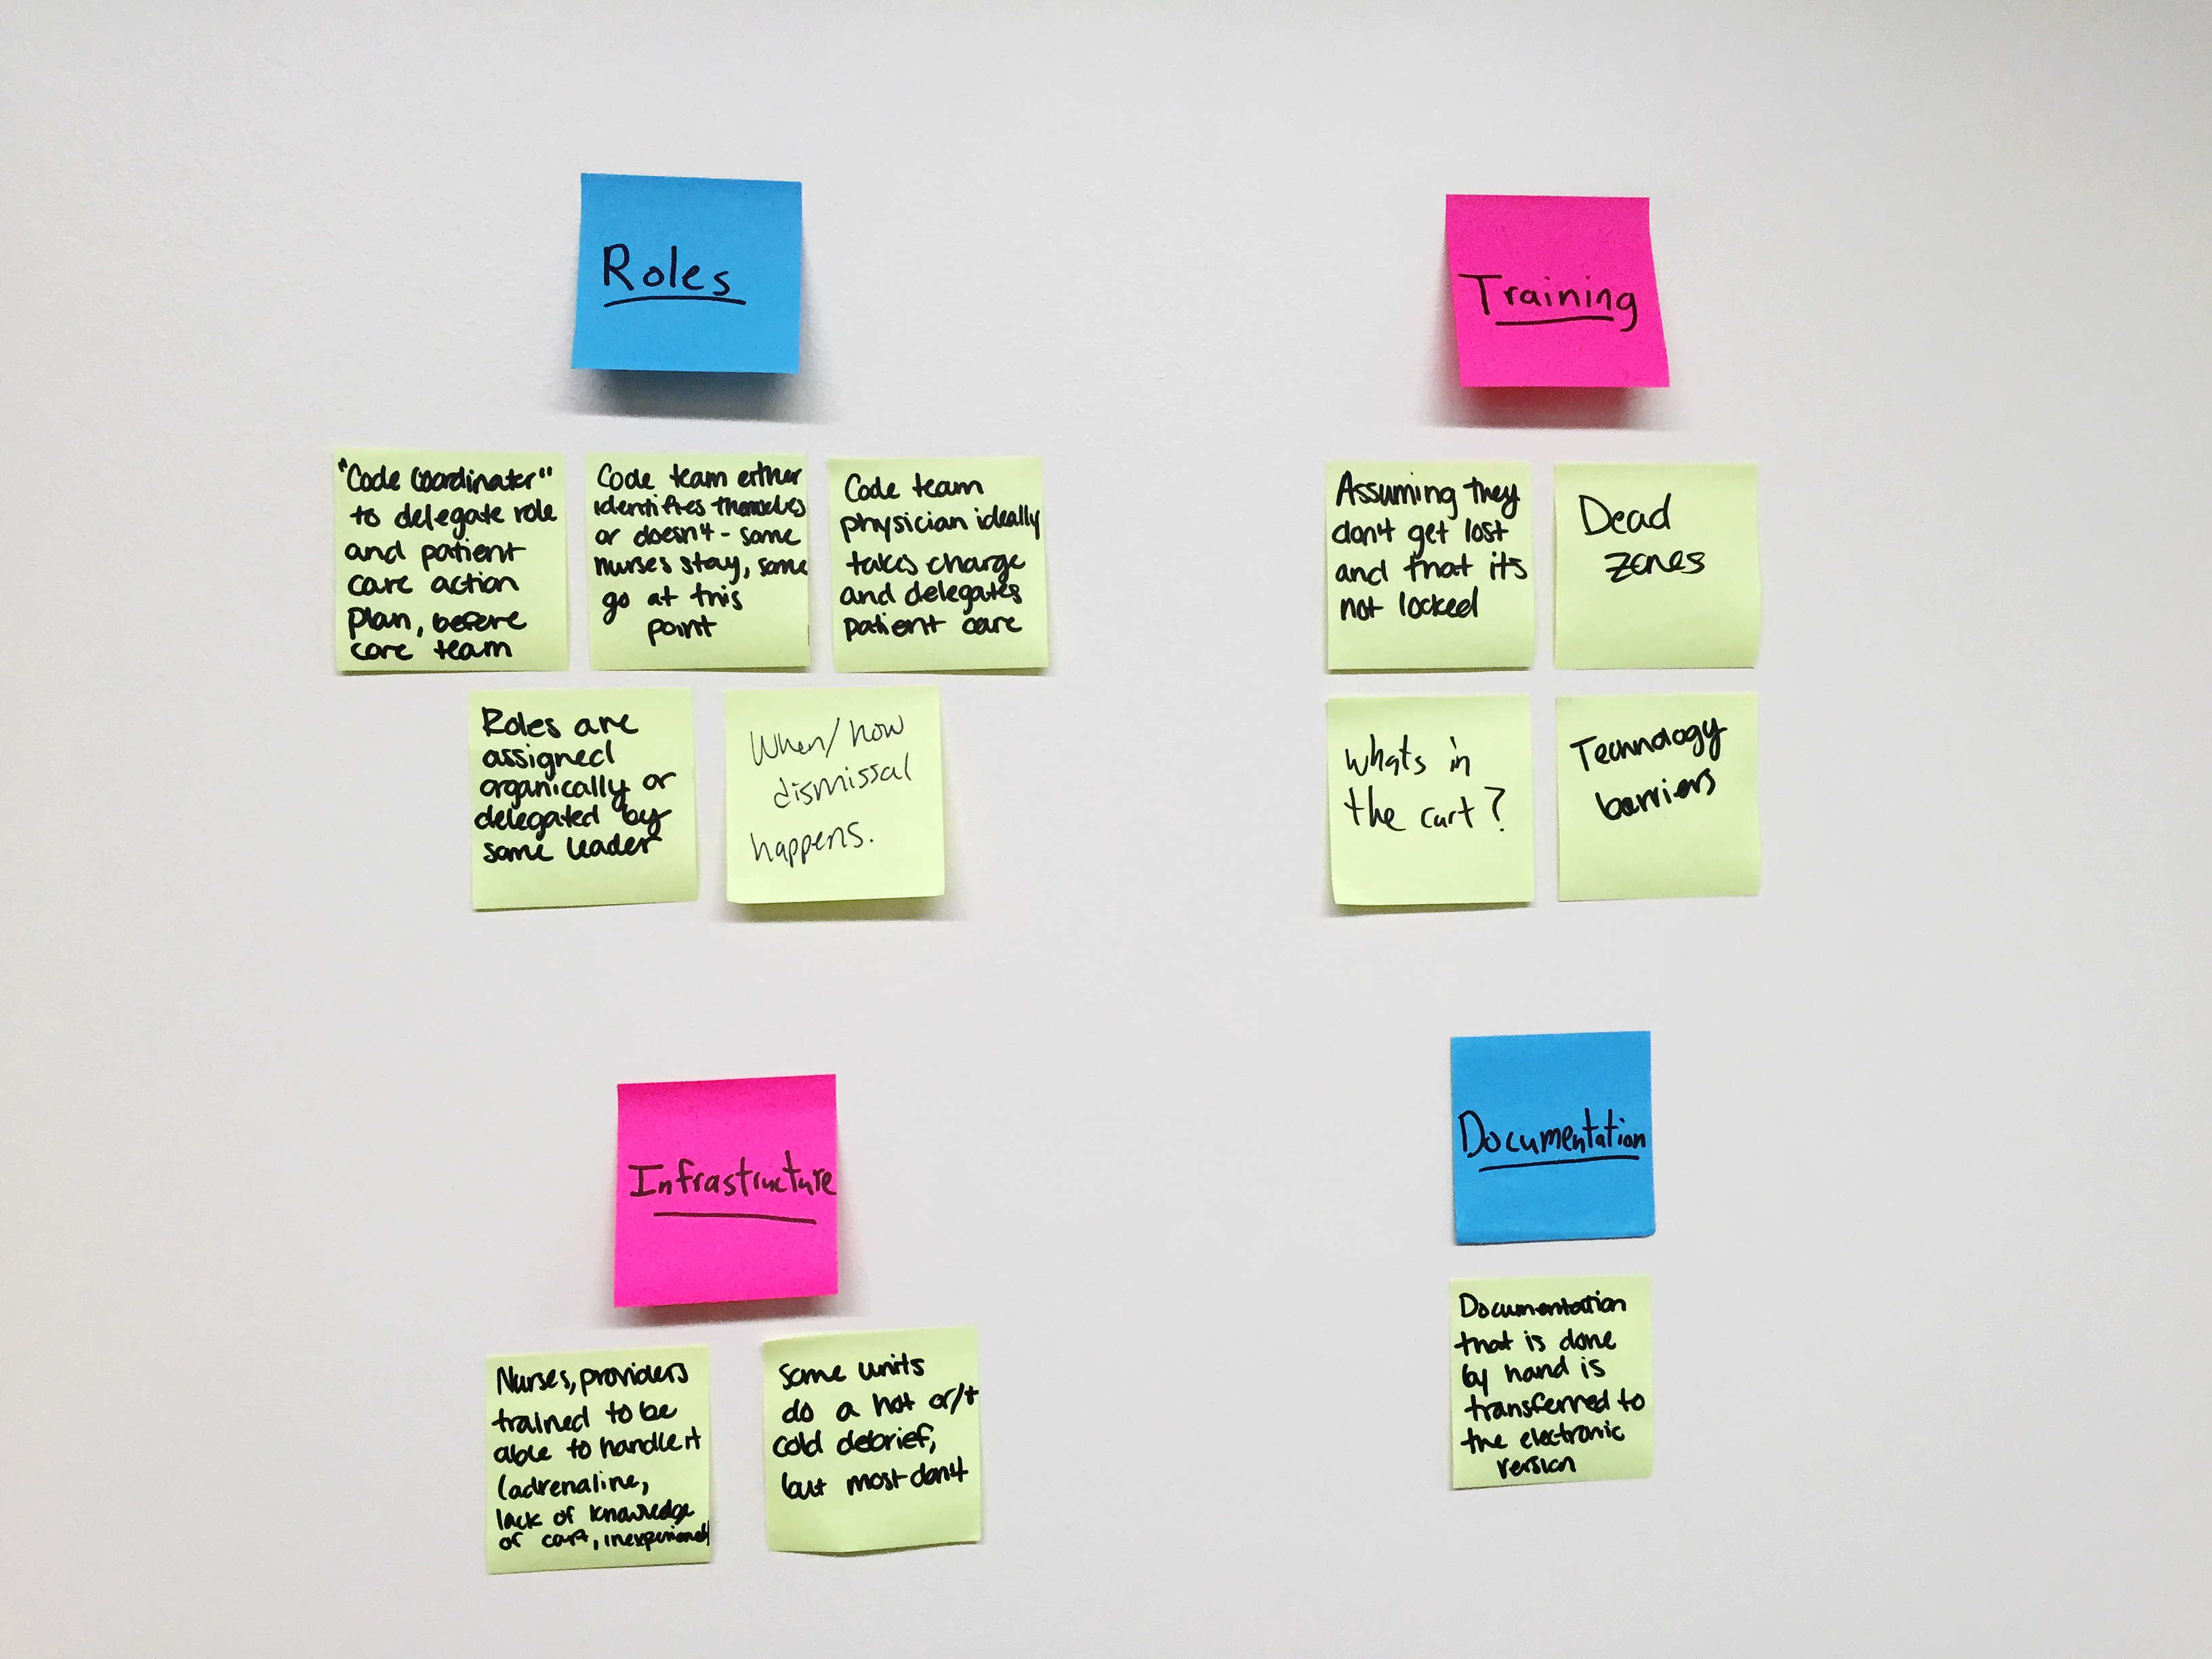 Roles
"Code Coordinator"
to delegate role
and patient
care action
plan, before
care team
Code team either
identifies themselves
or doesn't - some
nurses stay, some
go at this
point
Code team
physician ideally
takes charge
and delegates
patient care
Roles are
assigned
organically or
delegated by
some leader
When/how
dismissal
happens.
Training
Assuming they
don't get lost
and that it's
not locked
Dead
zones
Whats in
the cart?
Technology
barriers
Infrastructure
Nurses, providers
trained to be
able to handle it
(adrenaline,
lack of knowledge
of cart,
Some units
do a hot or/+
cold debrief,
but most don't
Documentation
Documentation
that is done
by hand is
transferred to
the electronic
version